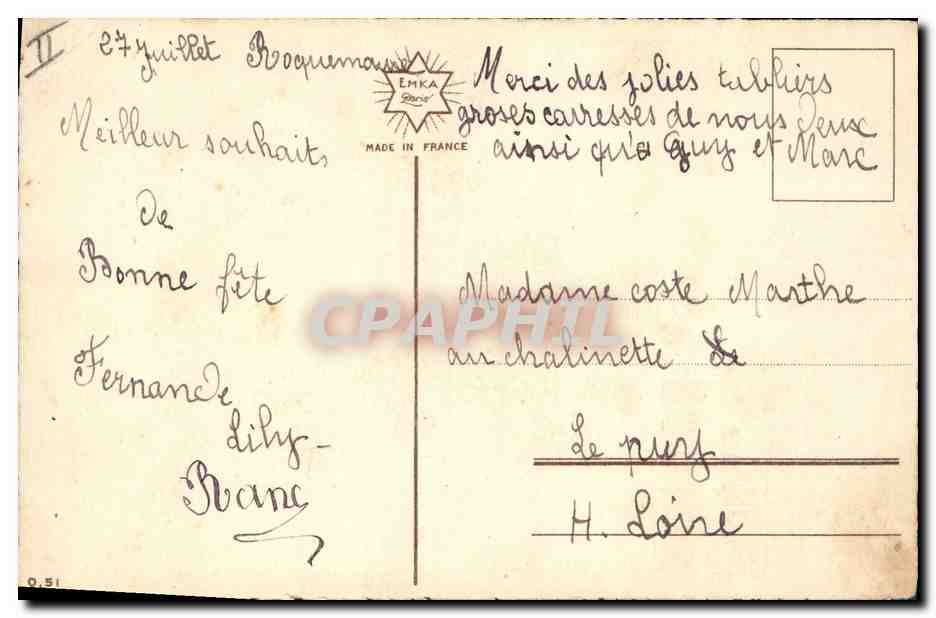 II
27 juillet Roquemaure
Meilleur souhaits
de
Bonne fête
Fernande
Lily -
Ranc
0,51
EMKA
Paris
MADE IN FRANCE
Merci des jolies tabliers
groses carresses de nous deux
ainsi qu'à Guy et Marc
Madame coste Marthe
au chalinette Le
Le puy
H. Loire
CPAPHIL